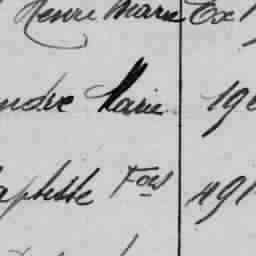 Henri Marie Ex
ndre Marie 19
aptiste Fois 491